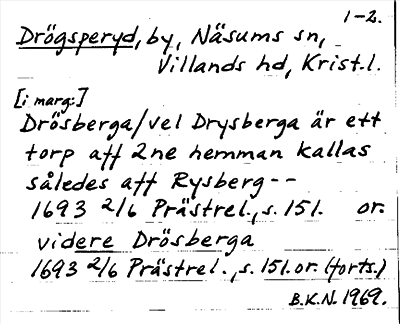 1-2.
Drögsperyd, by, Näsums sn,
Villands hd, Krist.l.
[i marg:]
Drösberga/vel Drysberga är ett
torp aff 2ne hemman kallas
således aff Rysberg--
1693 2/6 Prästrel., s. 151. or.
videre Drösberga
1693 2/6 Prästrel., s. 151. or. (forts.)
B.K.N. 1969.